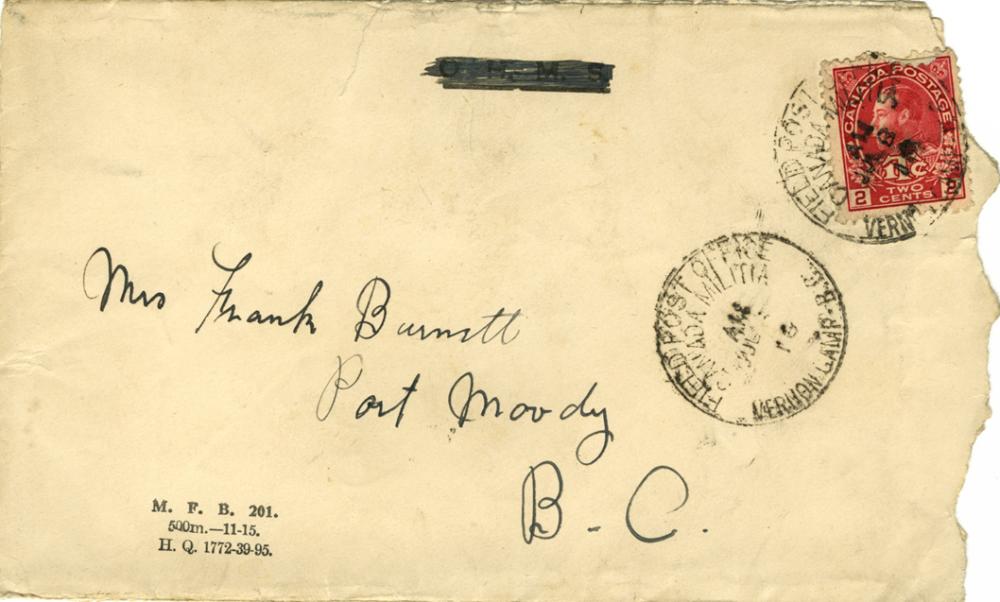 O. H. M. S.
CANADA POSTAGE
1Tc
2 TWO CENTS 2
FIELD POST
CANADA MILITIA
VERN
FIELD POST OFFICE
CANADA MILITIA
AM
16
VERNON CAMP. B.C.
Mrs Frank Burnett
Port Moody
B. C.
M. F. B. 201.
500m.—11-15.
H. Q. 1772-39-95.